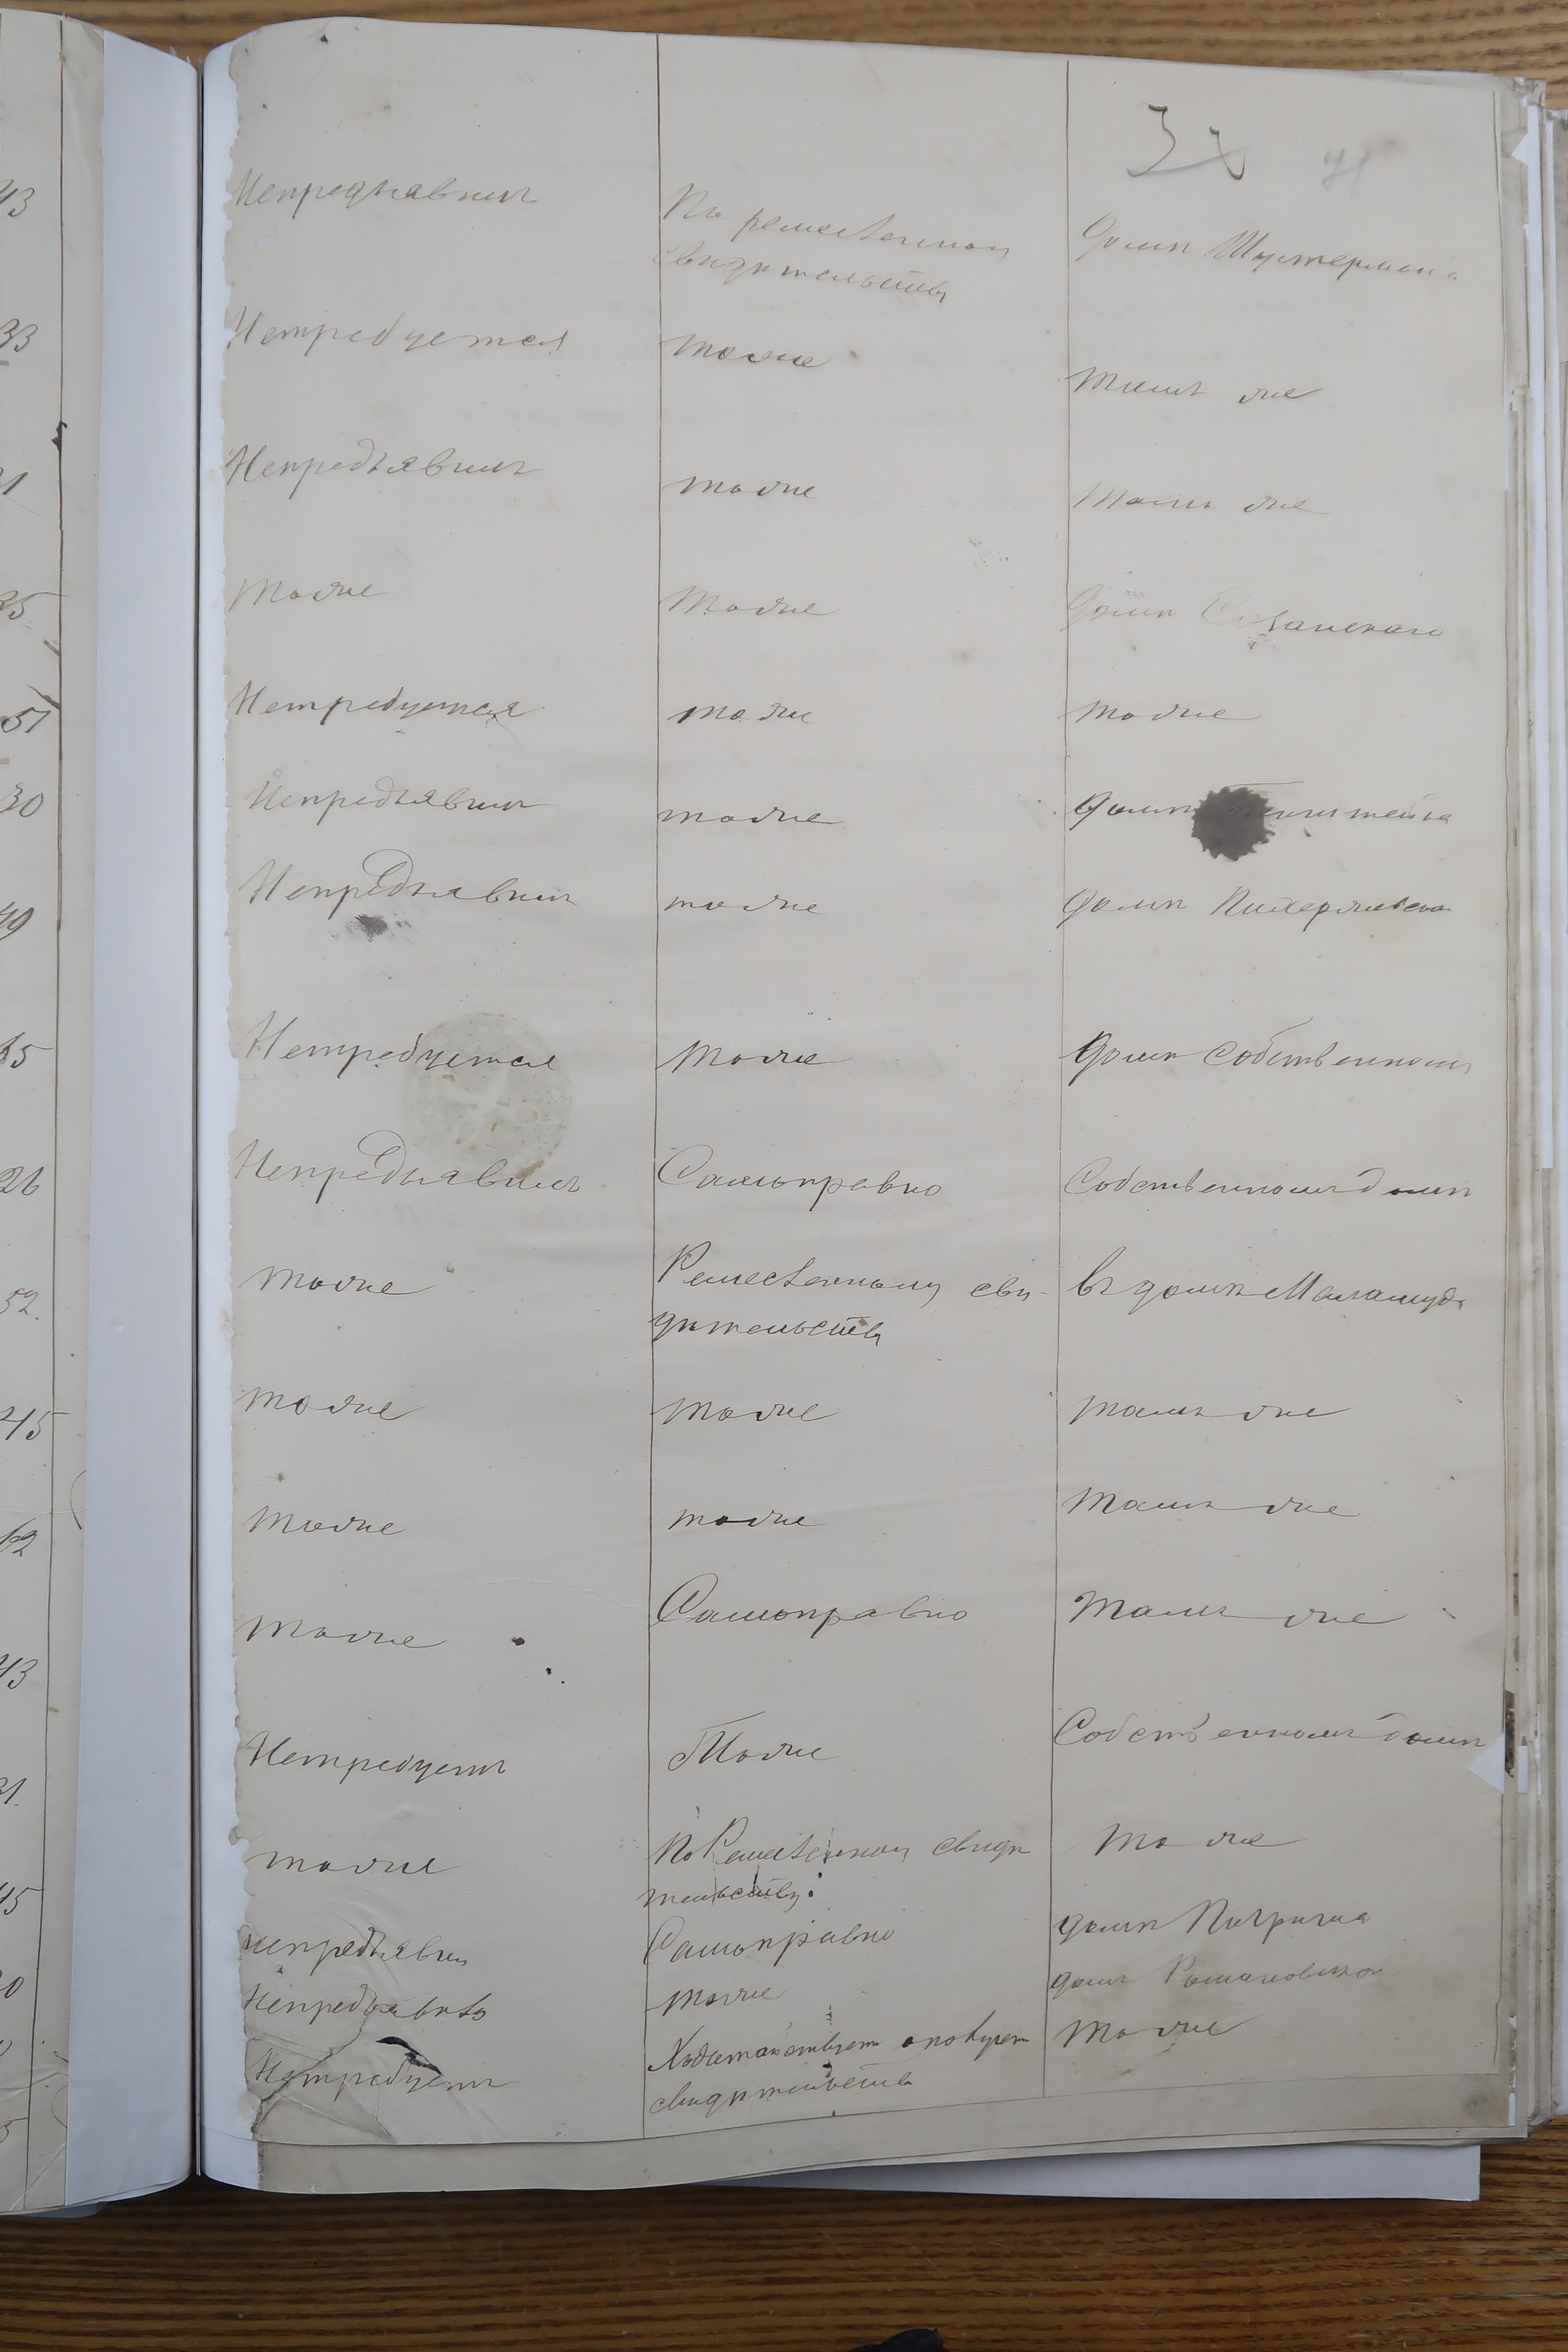 43
Непредъявилъ
По ремесленному
свидѣтельству
домѣ Шустермана
33
Нетребуется
тоже
тамъ же
Непредъявилъ
тоже
тамъ же
35
тоже
тоже
домѣ
51
Нетребуется
тоже
тоже
30
Непредъявилъ
тоже
домѣ
49
Непредъявилъ
тоже
домѣ
65
Нетребуется
тоже
домѣ собственномъ
26
Непредъявилъ
Самоправно
Собственномъ домѣ
52.
тоже
Ремесленному сви-
дѣтельству
въ домѣ Маламуда
45
тоже
тоже
тамъ же
62
тоже
тоже
тамъ же
43
тоже
Самоправно
тамъ же
31.
Нетребуетъ
Тоже
Собственномъ домѣ
45
тоже
По Ремесленному свидѣ
тельству
тоже
непредъявил
Самоправно
домѣ
Непредъявилъ
тоже
домъ Романовской
Нетребуетъ
Ходатайствуетъ
свидѣтельства
тоже